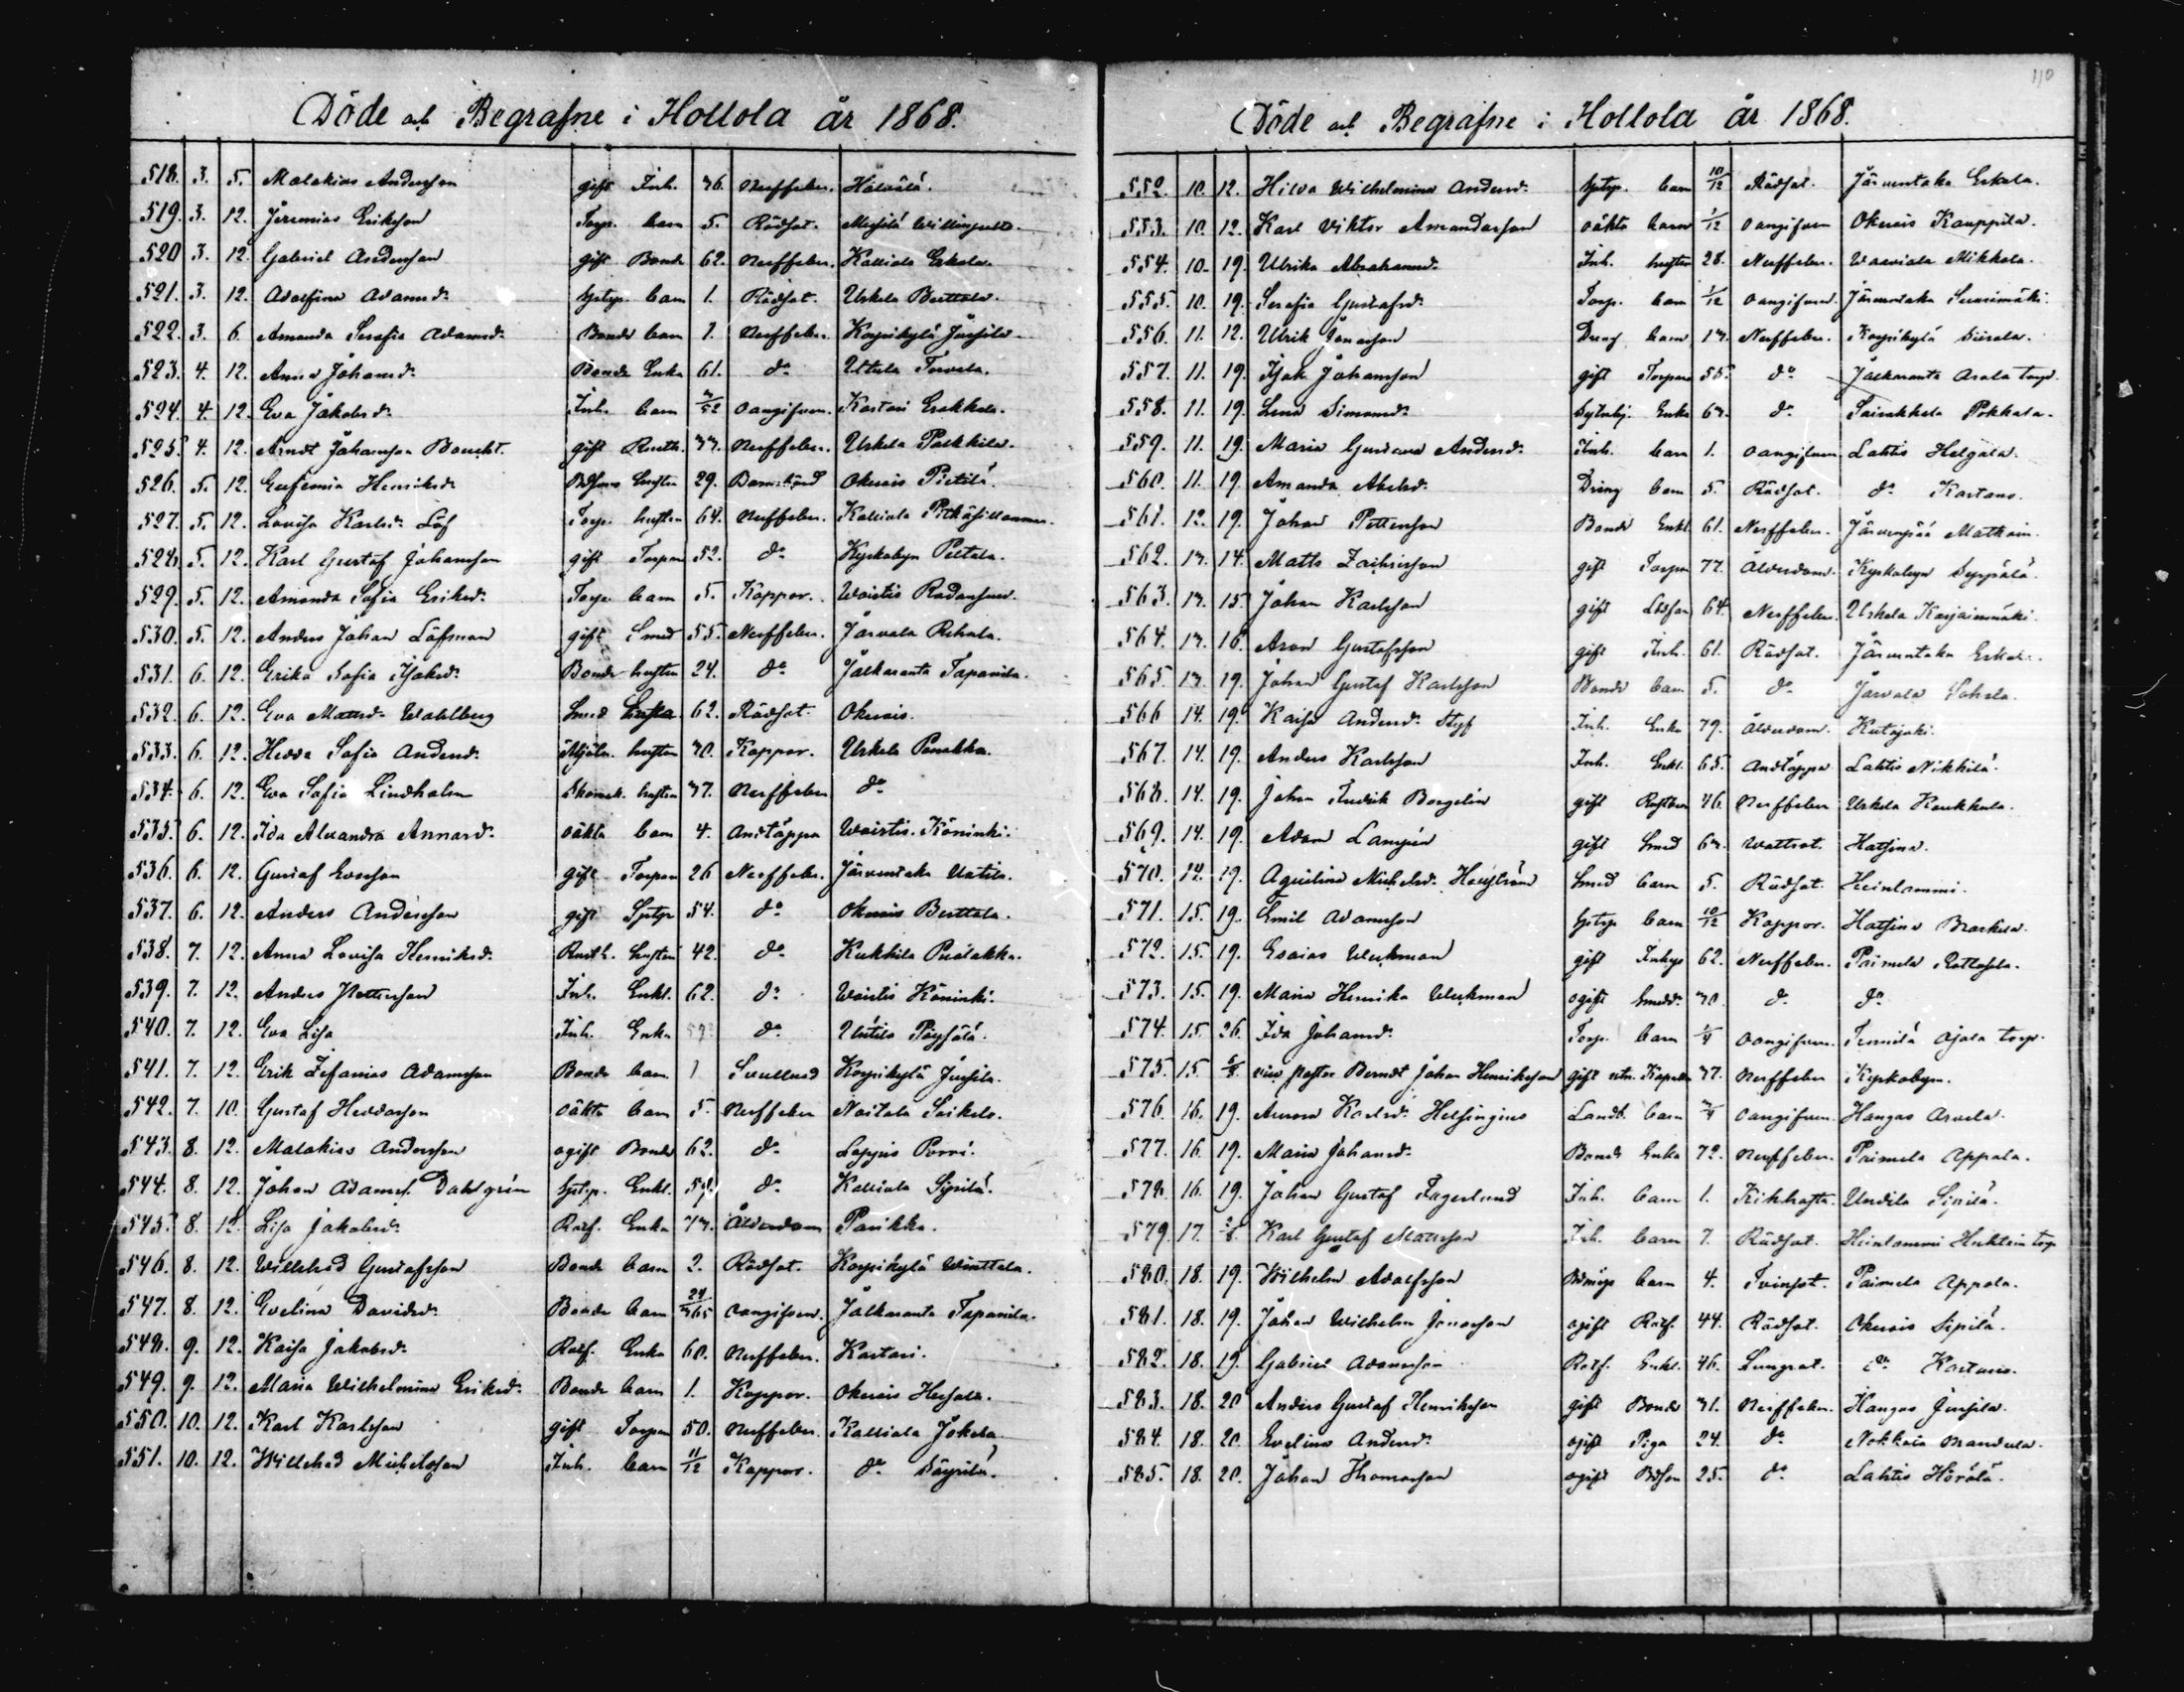 Döde och Begrafne i Hollola år 1868.
518. 3. 5. Malakias Andersson gift Inh. 46. Nerffeber. Hälvälä.
519. 3. 12. Jeremias Eriksson Torp. barn 5. Rödsot. Messilä
520 3. 12. Gabriel Andersson gift Bonde 62. Nerffeber. Kalliola Erkola.
521. 3. 12. Adolfina Adamsdr barn 1. Rödsot. Uskela Berttula.
522. 3. 6 Amanda Serafia Adamsdr Bonde barn 1. Nerffeber. Korpikylä Jussila.
523. 4. 12. Anna Johansdr Bonde Enka 61. do Utula Torvela.
524. 4. 12. Eva Jakobsdr Inh. barn 4/52 oangifven. Kastari Erakkala.
525. 4. 12. Arndt Johansson gift Rusth. 47. Nerffeber. Uskela Paakkila.
526. 5. 12. Eufemia Henriksdr hustru 29. Barnsbörd Okerois Pietilä.
527. 5. 12. Lovisa Karlsdr Löf Torp. hustru 64. Nerffeber. Kalliola
528. 5. 12. Karl Gustaf Johansson gift Torpare 52. do Kyrkobyn Peltola.
529. 5. 12. Amanda Sofia Eriksdr Torp. barn 5. Koppor. Woistis
530. 5. 12. Anders Johan Löfman gift Smed 55. Nerffeber. Jarvala Rekola.
531. 6. 12. Erika Sofia Isaksdr Bonde hustru 24. do Jalkaranta Tapanila.
532. 6. 12. Eva Mattsdr Wahlberg Smed Enka 62. Rödsot. Okerois.
533. 6. 12. Hedda Sofia Andersdr Mjöln. hustru 40. Koppor. Uskela
534. 6. 12. Eva Sofia Lindholm Skomak. hustru 47. Nerffeber do
535. 6. 12. Ida Alexandra Annasdr oäkta barn 4. Andtäppa Woistis Köninki.
536. 6. 12. Gustaf Evasson gift Torpare 26 Nerffeber. Järventaka Uotila.
537. 6. 12. Anders Andersson gift 54. do Okerois Berttula.
538. 7. 12. Anna Lovisa Henriksdr Rusth. hustru 42. do Kukkila
539. 7. 12. Anders Pettersson Inh. Enkl. 62. do Woistis Köninki.
540. 7. 12. Eva Lisa Inh. Enka do Untila
541. 7. 12. Erik Zefanias Adamsson Bonde barn 1 Svullnad Korpikylä Jussila.
542. 7. 10. Gustaf Heddasson oäkta barn 5. Nerffeber Noitala Seikola.
543. 8. 12. Malakias Andersson ogift Bonde 62. do Loppis Porri.
544. 8. 12. Johan Adamss. Dahlgrén Enkl. 59. do Kalliola Sipilä.
545. 8. 12. Lisa Jakobsdr Rotf. Enka Ålderdom Panikka.
546. 8. 12. Willehad Gustafsson Bonde barn 2. Rödsot. Korpikylä Winttala.
547. 8. 12. Evelina Davidsdr Bonde barn 24/365 oangifven. Jalkaranta Tapanila.
548. 9. 12. Kaisa Jakobsdr Rotf. Enka 60. Nerffeber. Kastari.
549. 9. 12. Maria Wilhelmina Eriksdr Bonde barn 1. Koppor. Okerois
550. 10. 12. Karl Karlsson gift Torpare 50. Nerffeber. Kalliola Jokela
551. 10. 12. Willehad Michelsson Inh. barn 11/12 Koppor. do
110
Döde och Begrafne i Hollola år 1868.
552. 10. 12. Hilda Wilhelmina Andersdr barn 10/12 Rödsot. Järventaka Erkola.
553. 10. 12. Karl Viktor Amandasson oäkta barn 1/12 oangifven Okerois Kauppila.
554. 10. 19. Ulrika Abrahamsdr Inh. hustru 28. Nerffeber. Waaviala Mikkola.
555. 10. 19. Serafia Gustafsdr Torp. barn 1/12 oangifven. Järventaka Suurimäki.
556. 11. 12. Ulrik Jonasson Dreng barn Nerffeber. Korpikylä
557. 11. 19. Isak Johansson gift Torpare 55. do Jalkaranta Asola torp.
558. 11. 19. Lena Simonsdr Enka do Sairakkala Pokkala.
559. 11. 19. Maria Gustava Andersdr Inh. barn 1. oangifven Lahtis
560. 11. 19 Amanda Abelsdr Dreng barn 5. Rödsot. do Kartano.
561. 12. 19. Johan Pettersson Bonde Enkl. 61. Nerffeber. Järvenpää
562. 14. Matts Zachrisson gift Torpare 77. Ålderdom. Kyrkobyn Seppälä.
563. 15. Johan Karlsson gift 64. Nerffeber. Uskela
564. 16. Aron Gustafsson gift Inh. 61. Rödsot. Järventaka Erkola.
565. 19. Johan Gustaf Karlsson Bonde barn 5. do Jarvala
566 14. 19. Kaisa Andersdr Styf Inh. Enka 79. Ålderdom. Kutajoki.
567. 14. 19. Anders Karlsson Inh. Enkl. 65. Andtäppa Lahtis Nikkilä.
568. 14. 19. Johan Fredrik Borgelin gift 46. Nerffeber Uskela Kaukkala.
569. 14. 19. Adam Lampén gift Smed Wattsot. Hatsina.
570. 14. 19. Aqvilina Michelsdr Smed barn 5. Rödsot. Heinlammi.
571. 15. 19. Emil Adamsson barn 10/12 Koppor. Hatsina
572. 15. 19. Esaias Weckman gift 62. Nerffeber. Paimela
573. 15. 19. Maria Henrika Weckman ogift do do
574. 15. 26. Ida Johansdr Torp. barn oangifven. Tennilä Ojala torp.
575. 15. vice pastor Berndt Johan Henriksson gift Kapellan 47. Nerffeber Kyrkobyn.
576. 16. 19. Aurora Karlsdr Helsingius Landb. barn oangifven. Hangas Arvela.
577. 16. 19. Maria Johansdr Bonde Enka 72. Nerffeber. Paimela Appala.
578. 16. 19. Johan Gustaf Fagerlund Inh. barn 1. Kikhosta. Untila Sipilä.
579. 17. Karl Gustaf Mattsson Inh. barn 7. Rödsot. Heinlammi torp
580. 18. 19. Wilhelm Adolfsson barn 4. Tvinsot. Paimela Appala.
581. 18. 19. Johan Wilhelm Jonasson ogift Rotf. 44. Rödsot. Okerois Sipilä.
582. 18. 19. Gabriel Adamsson Rotf. Enkl. 46. Lungsot. do Kartano.
583. 18. 20 Anders Gustaf Henriksson gift Bonde 41. Nerffeber. Hangas Jussila.
584. 18. 20. Evelina Andersdr ogift Piga 24. do Nokkola
585. 18. 20. Johan Thomasson ogift 25. do Lahtis Hörölä.